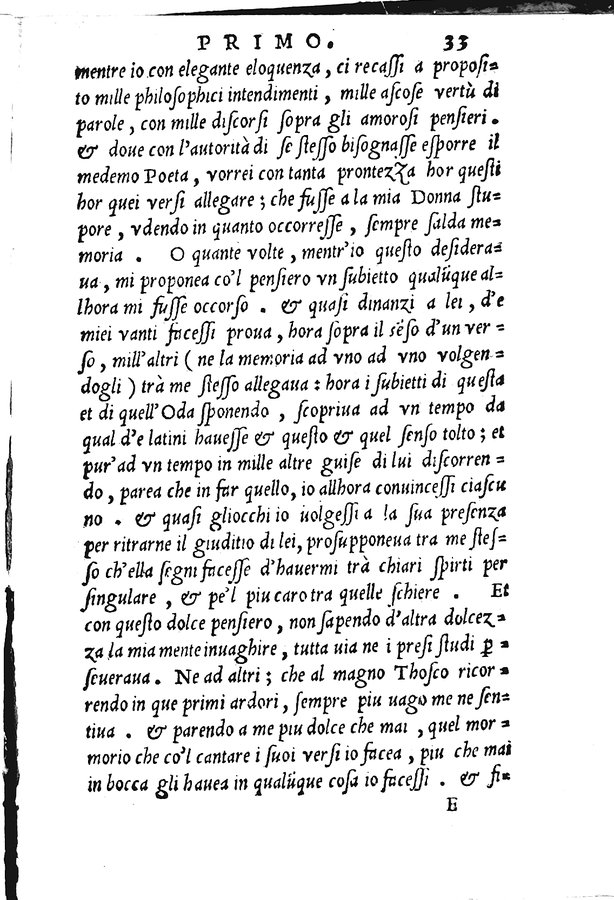 PRIMO. 33
mentre io con elegante eloquenza, ci recaſſi a propoſi=
to mille philoſophici intendimenti, mille aſcoſe vertù di
parole, con mille diſcorſi ſopra gli amoroſi penſieri.
& doue con l'autorità di ſe ſteſſo biſognaſſe eſporre il
medemo Poeta, vorrei con tanta prontezza hor queſti
hor quei verſi allegare; che fuſſe a la mia Donna ſtu=
pore, vdendo in quanto occorreſſe, ſempre ſalda me=
moria. O quante volte, mentr'io queſto deſidera=
ua, mi proponea co'l penſiero vn ſubietto qualũque al=
lhora mi fuſſe occorſo. & quaſi dinanzi a lei, d'e
miei vanti faceſſi proua, hora ſopra il sẽſo d'un ver=
ſo, mill'altri (ne la memoria ad vno ad vno volgen=
dogli) trà me ſteſſo allegaua: hora i ſubietti di queſta
et di quell'Oda ſponendo, ſcopriua ad vn tempo da
qual d'e latini haueſſe & queſto & quel ſenſo tolto; et
pur'ad vn tempo in mille altre guiſe di lui diſcorren=
do, parea che in far quello, io allhora conuinceſſi ciaſcu
no. & quaſi gliocchi io uolgeſſi a la ſua preſenza
per ritrarne il giuditio di lei, proſupponeua tra me ſteſ=
ſo ch'ella ſegni faceſſe d'hauermi trà chiari ſpirti per
ſingulare, & pe'l piu caro tra quelle ſchiere. Et
con queſto dolce penſiero, non ſapendo d'altra dolcez=
za la mia mente inuaghire, tutta uia ne i preſi ſtudi ꝑ=
ſeueraua. Ne ad altri; che al magno Thoſco ricor=
rendo in que primi ardori, ſempre piu uago me ne ſen=
tiua. & parendo a me piu dolce che mai, quel mor=
morio che co'l cantare i ſuoi verſi io facea, piu che mai
in bocca gli hauea in qualũque coſa io faceſſi. & ſi=
E